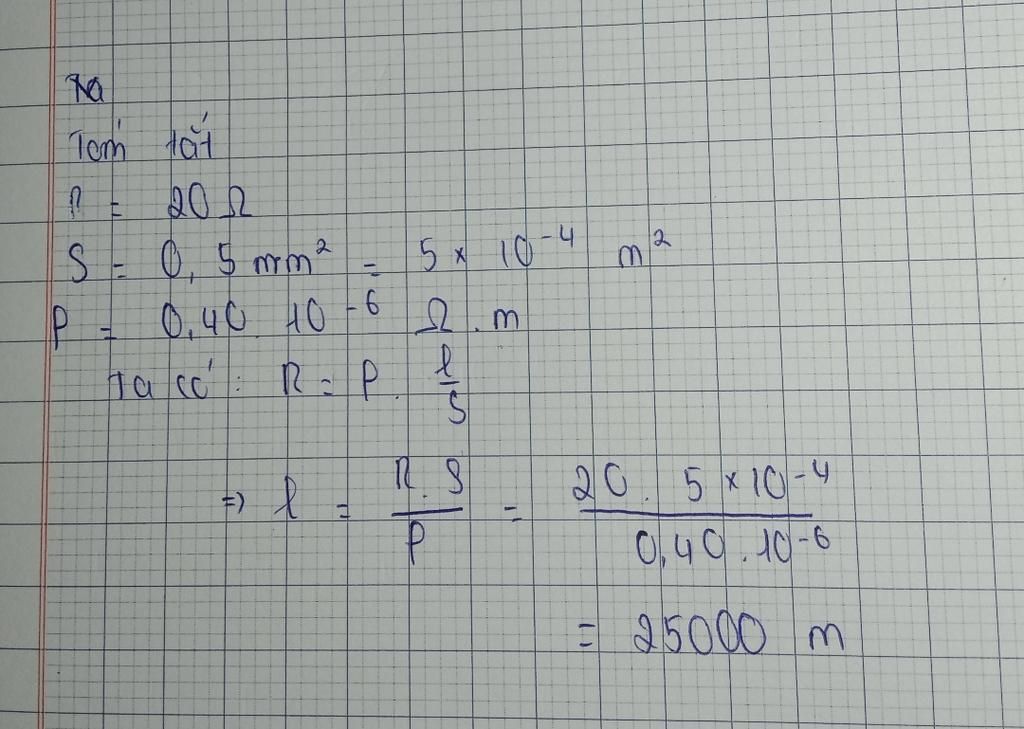 Tóm tắt
R = 20 Ω
S = 0,5 mm² = 5 × 10⁻⁴ m²
ρ = 0,40 10⁻⁶ Ω.m
Ta có : R = ρ . l/S
=> l = R.S/ρ = 20. 5×10⁻⁴/0,40.10⁻⁶
= 25000 m